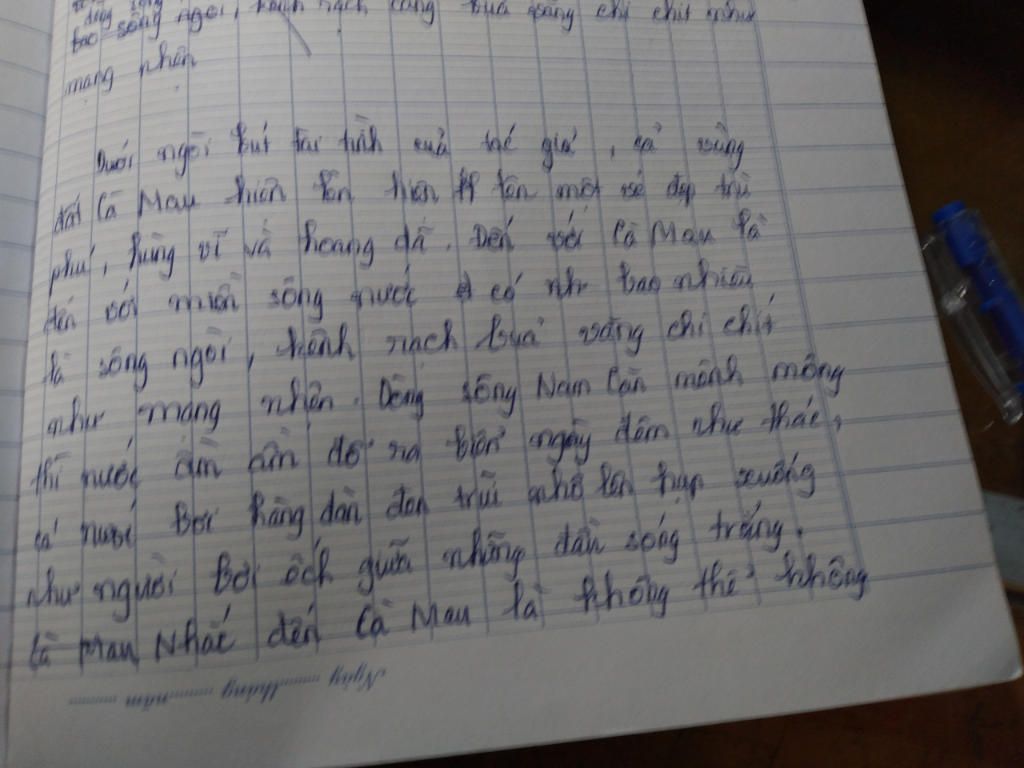 sông ngòi, kênh rạch càng bủa giăng chi chít như
mạng nhện
Dưới ngòi bút tài tình của tác giả, cả vùng
đất Cà Mau hiện lên hiện lên một vẻ đẹp trù
phú, hùng vĩ và hoang dã. Đến với Cà Mau là
đến với miền sông nước có nh bao nhiêu
là sông ngòi, kênh rạch bủa văng chi chít
như mạng nhện. Dòng sông Năm Căn mênh mông
thì nước ầm ầm đổ ra biển ngày đêm như thác,
cá nước bơi hàng đàn đen trũi nhô lên hụp xuống
như người bơi ếch giữa những đầu sóng trắng.
Cà Mau Nhắc đến Cà Mau là không thể không
Ngày tháng năm